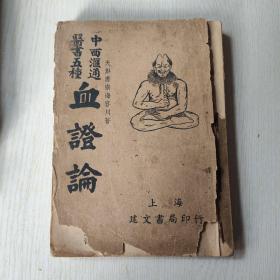 中西滙通
醫書五種
血證論
天彭唐宗海容川著
上海
建文書局印行